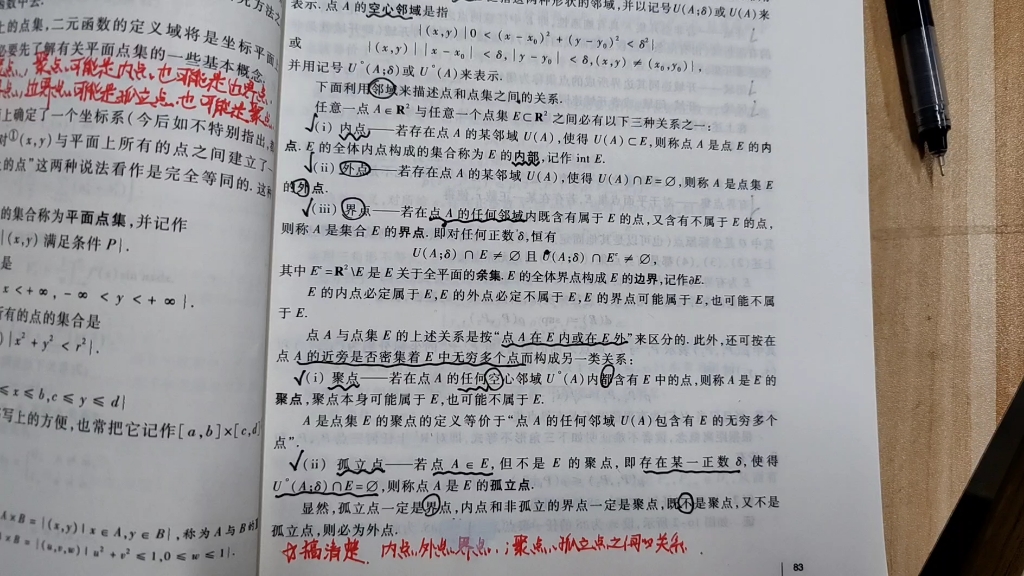 上的点集,二元函数的定义域将是坐标平面
必要先了解有关平面点集的一些基本概念.
聚点可能是内点,也可能是边界点,
上确定了一个坐标系(今后如不特别指出,
对①(x,y)与平面上所有的点之间建立了一
的点”这两种说法看作是完全等同的.这种
的集合称为平面点集,并记作
|(x,y)满足条件 P|.
是
x<+∞,-∞<y<+∞|.
所有的点的集合是
)|x²+y²<r²|.
≤x≤b,c≤y≤d|
写上的方便,也常把它记作[a,b]×[c,d]
A×B=|(x,y)|x∈A,y∈B|,称为A与B的
×B=|(u,v,w)|u²+v²≤1,0≤w≤1|.
表示.点 A 的空心邻域是指
|(x,y)|0<(x-x₀)²+(y-y₀)²<δ²|
或
|(x,y)||x-x₀|<δ,|y-y₀|<δ,(x,y)≠(x₀,y₀)|,
并用记号 U°(A;δ)或 U°(A)来表示.
下面利用邻域来描述点和点集之间的关系.
任意一点 A∈R² 与任意一个点集 E⊂R² 之间必有以下三种关系之一:
(i) 内点——若存在点 A 的某邻域 U(A),使得 U(A)⊂E,则称点 A 是点 E 的内
点.E 的全体内点构成的集合称为 E 的内部,记作 int E.
(ii) 外点——若存在点 A 的某邻域 U(A),使得 U(A)∩E=∅,则称 A 是点集 E
的外点.
(iii) 界点——若在点 A 的任何邻域内既含有属于 E 的点,又含有不属于 E 的点,
则称 A 是集合 E 的界点.即对任何正数 δ,恒有
U(A;δ)∩E≠∅ 且 U(A;δ)∩Eᶜ≠∅,
其中 Eᶜ=R²\E 是 E 关于全平面的余集.E 的全体界点构成 E 的边界,记作∂E.
E 的内点必定属于 E,E 的外点必定不属于 E,E 的界点可能属于 E,也可能不属
于 E.
点 A 与点集 E 的上述关系是按“点 A 在 E 内或在 E 外”来区分的.此外,还可按在
点 A 的近旁是否密集着 E 中无穷多个点而构成另一类关系:
(i) 聚点——若在点 A 的任何空心邻域 U°(A)内都含有 E 中的点,则称 A 是 E 的
聚点,聚点本身可能属于 E,也可能不属于 E.
A 是点集 E 的聚点的定义等价于“点 A 的任何邻域 U(A)包含有 E 的无穷多个
点”.
(ii) 孤立点——若点 A∈E,但不是 E 的聚点,即存在某一正数 δ,使得
U°(A;δ)∩E=∅,则称点 A 是 E 的孤立点.
显然,孤立点一定是界点,内点和非孤立的界点一定是聚点,既不是聚点,又不是
孤立点,则必为外点.
搞清楚 内点,外点,界点,;聚点,孤立点之间的关系.
83